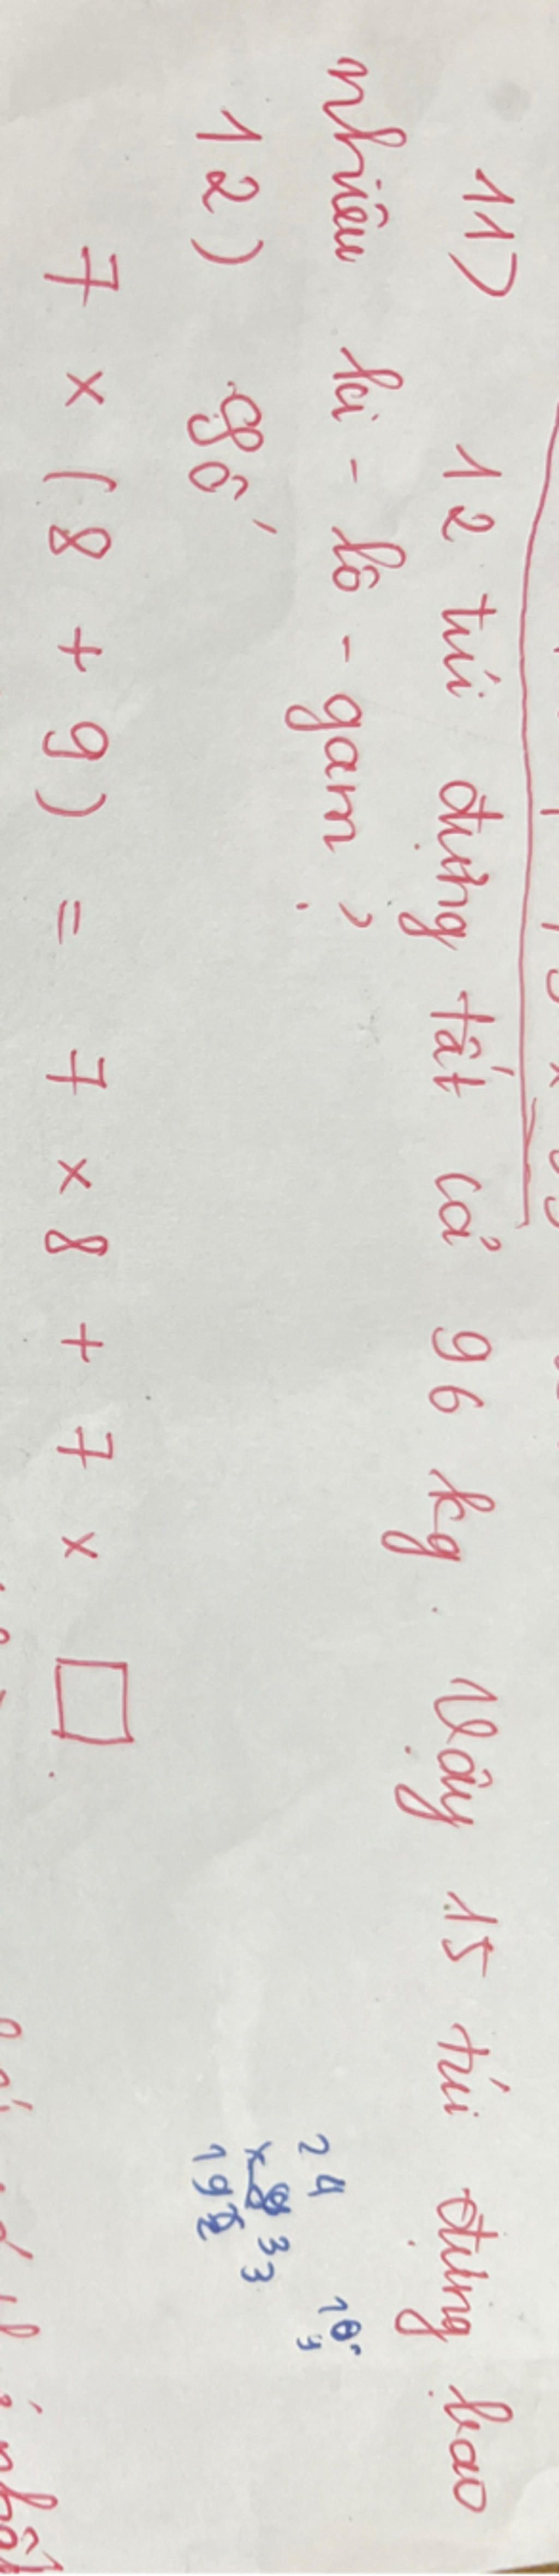 11) 12 túi đựng tất cả 96 kg. Vậy 15 túi đựng bao
nhiêu ki-lô-gam?
12) Số
7 x (8 + 9) = 7 x 8 + 7 x □.
24
x 8
192
33